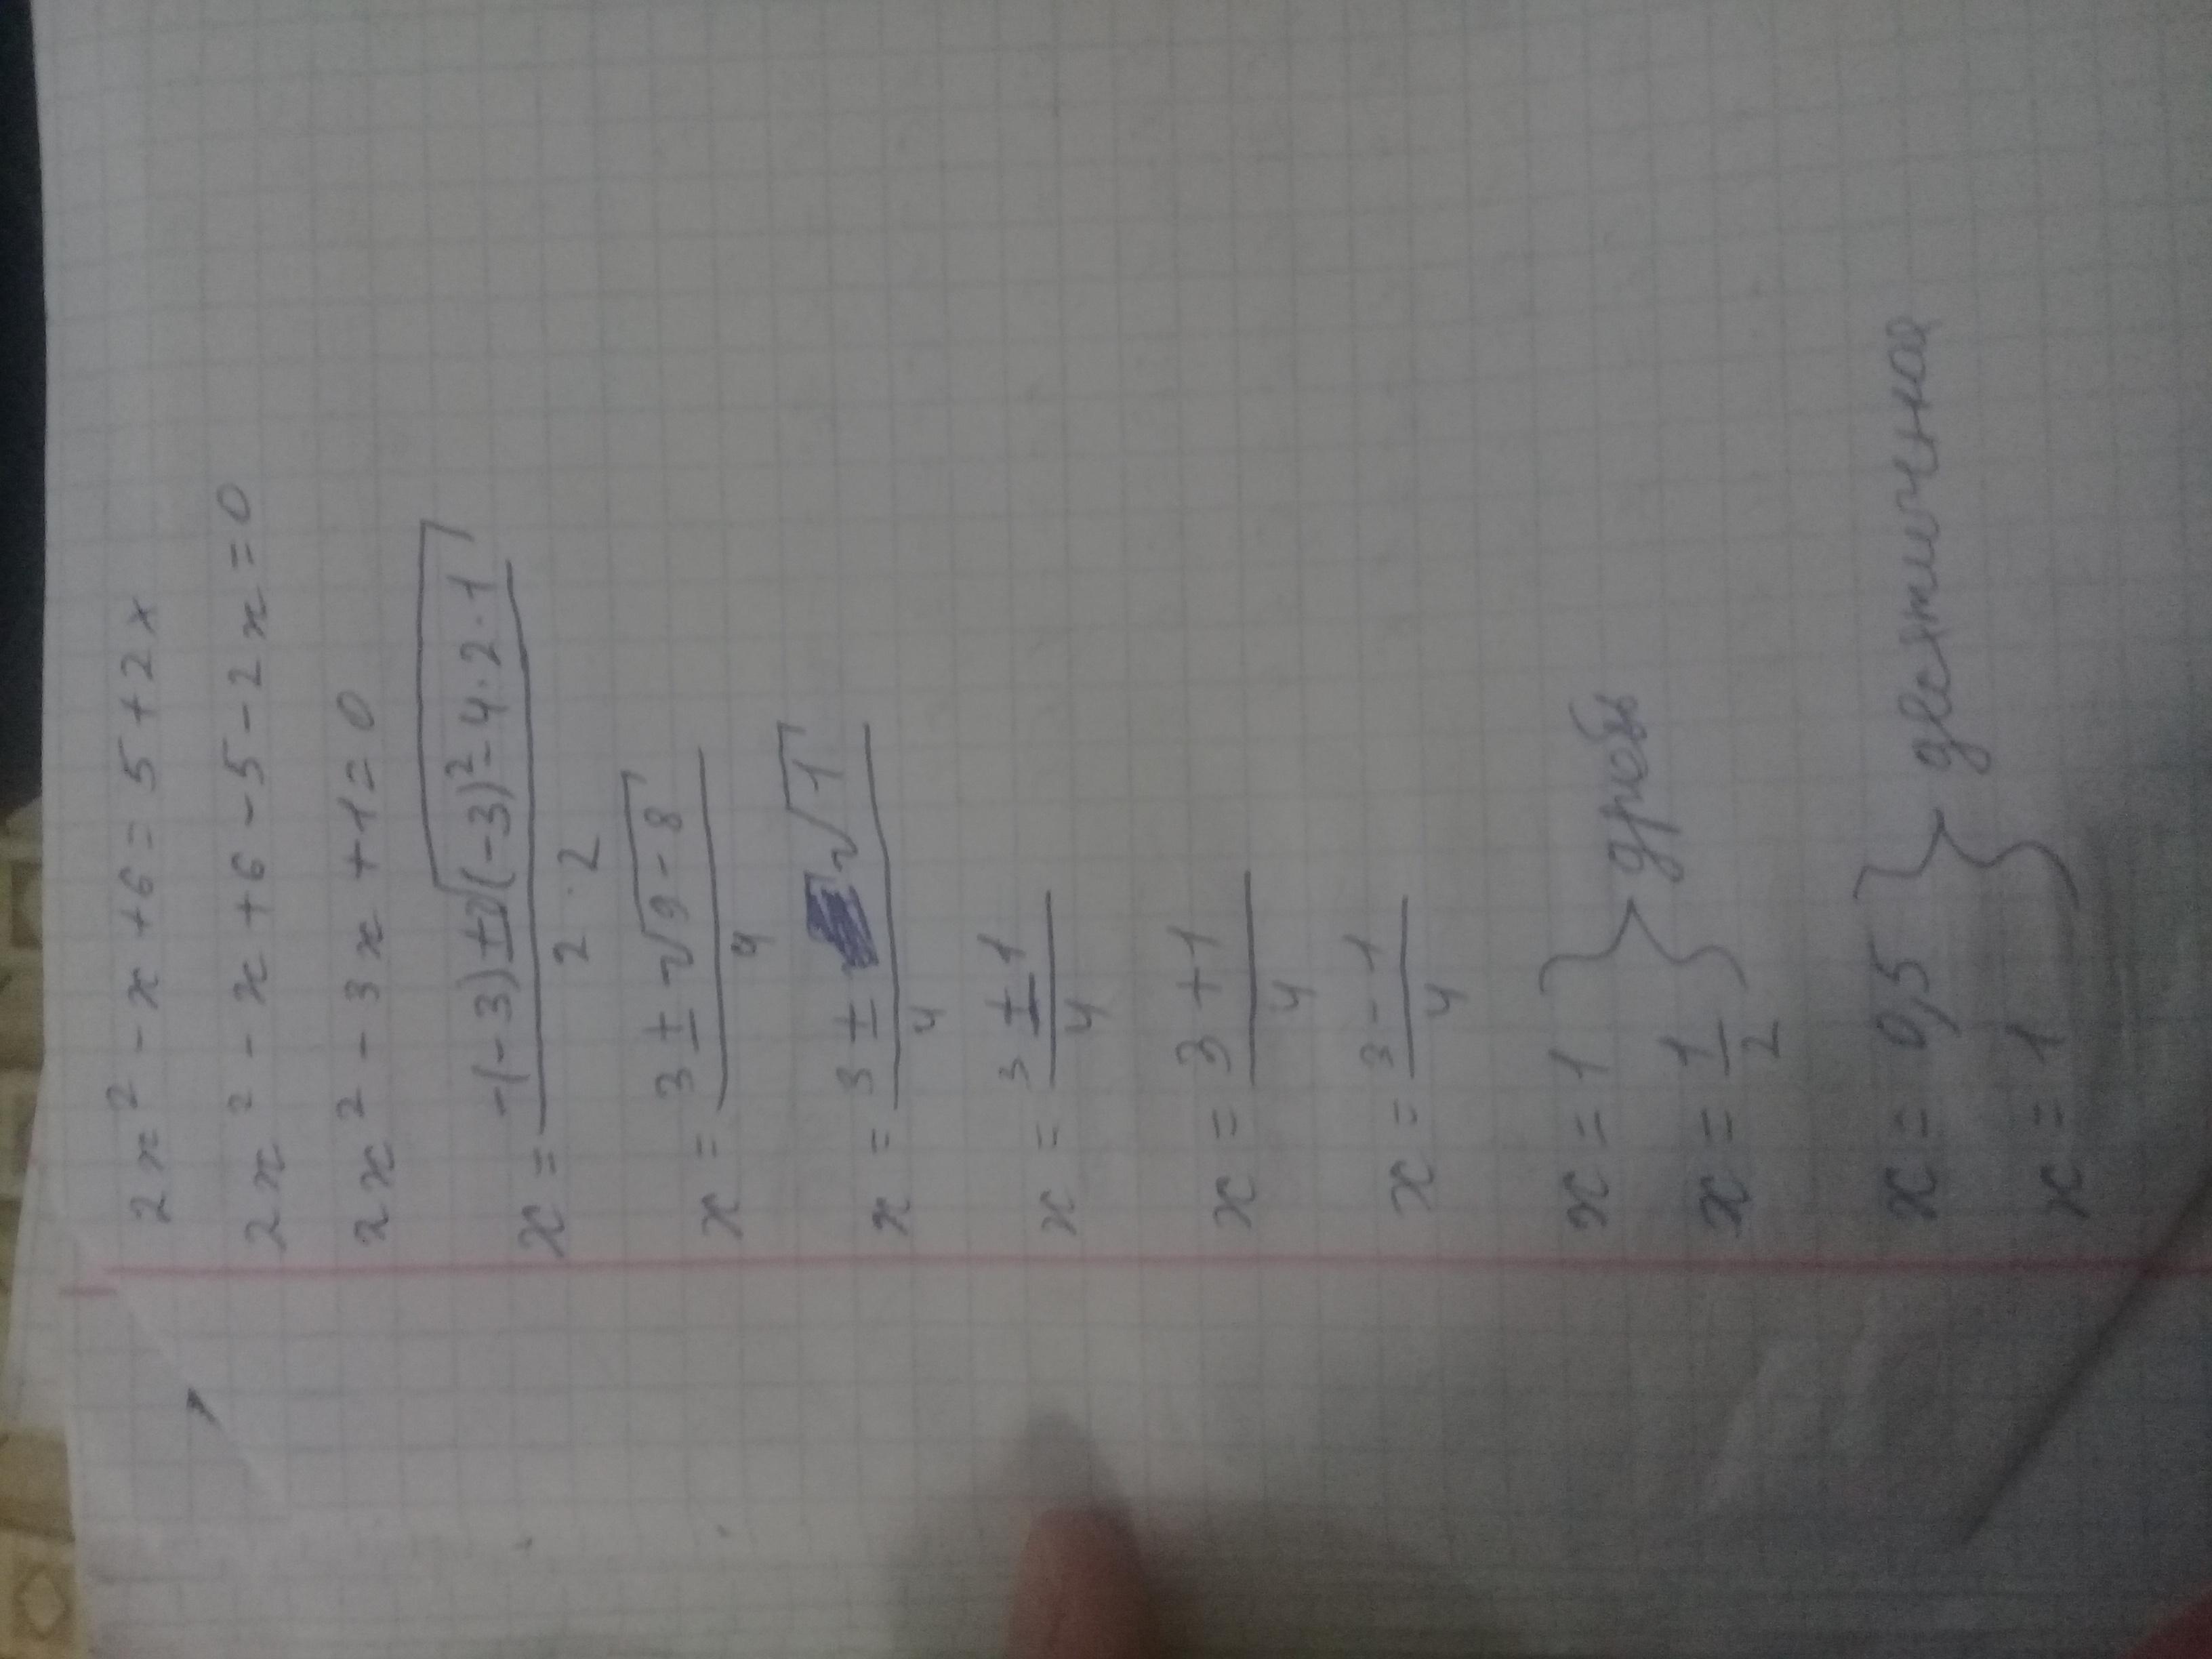 2x² - x + 6 = 5 + 2x
2x² - x + 6 - 5 - 2x = 0
2x² - 3x + 1 = 0
x = (-(-3) ± √((-3)² - 4 · 2 · 1)) / (2 · 2)
x = (3 ± √(9 - 8)) / 4
x = (3 ± √1) / 4
x = (3 ± 1) / 4
x = (3 + 1) / 4
x = (3 - 1) / 4
x = 1
x = 1/2 } дробь
x = 0,5
x = 1 } десятичная